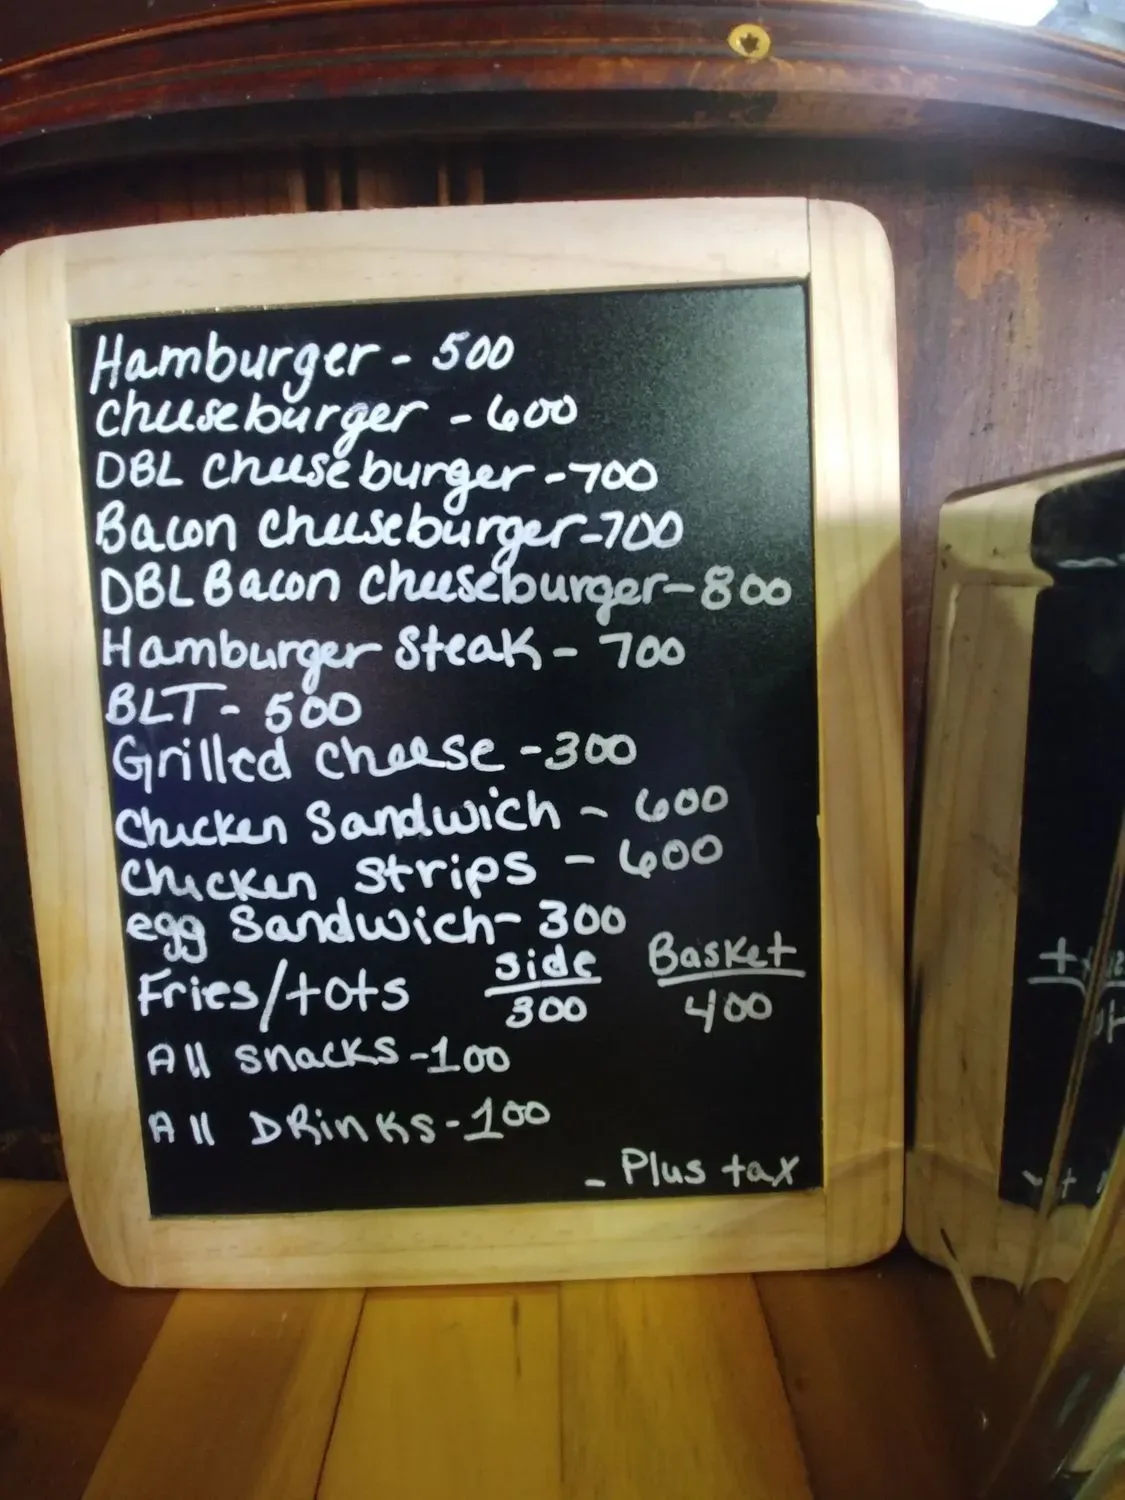 Hamburger - 500
Cheeseburger - 600
DBL Cheeseburger - 700
Bacon Cheeseburger - 700
DBL Bacon Cheeseburger - 800
Hamburger Steak - 700
BLT - 500
Grilled Cheese - 300
Chicken Sandwich - 600
Chicken Strips - 600
egg Sandwich - 300
Side Basket
Fries/tots 300 400
All snacks - 100
All DRinks - 100
- Plus tax